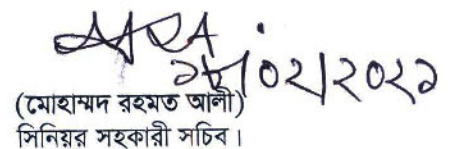 ২৮/০২/২০২১
(মোহাম্মদ রহমত আলী)
সিনিয়র সহকারী সচিব।